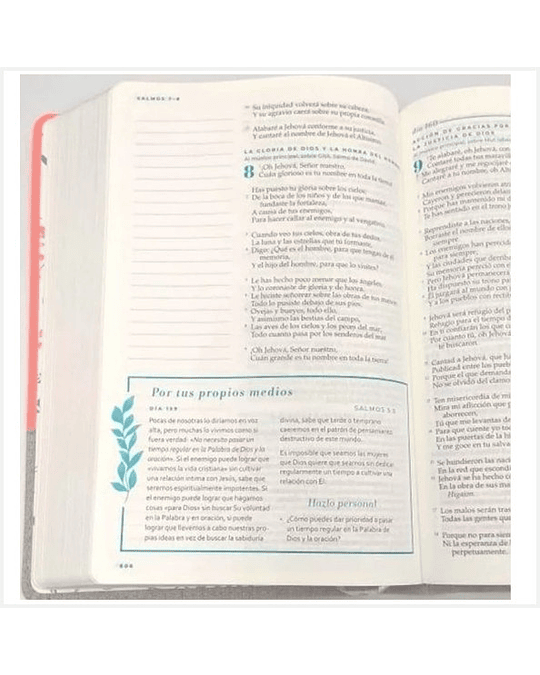 SALMOS 7-8
Su iniquidad volverá sobre su cabeza,
Y su agravio caerá sobre su propia coronilla.
Alabaré a Jehová conforme a su justicia,
Y cantaré al nombre de Jehová el Altísimo.
LA GLORIA DE DIOS Y LA HONRA DEL
Al músico principal; sobre Gitit. Salmo de David.
8 ¡Oh Jehová, Señor nuestro,
Cuán glorioso es tu nombre en toda la tierra!
Has puesto tu gloria sobre los cielos;
De la boca de los niños y de los que maman,
fundaste la fortaleza,
A causa de tus enemigos,
Para hacer callar al enemigo y al vengativo.
Cuando veo tus cielos, obra de tus dedos,
La luna y las estrellas que tú formaste,
Digo: ¿Qué es el hombre, para que tengas de él
memoria,
Y el hijo del hombre, para que lo visites?
Le has hecho poco menor que los ángeles,
Y lo coronaste de gloria y de honra.
Le hiciste señorear sobre las obras de tus manos;
Todo lo pusiste debajo de sus pies:
Ovejas y bueyes, todo ello,
Y asimismo las bestias del campo,
Las aves de los cielos y los peces del mar;
Todo cuanto pasa por los senderos del mar.
¡Oh Jehová, Señor nuestro,
Cuán grande es tu nombre en toda la tierra!
Por tus propios medios
DÍA 159
SALMOS 5:3
Pocas de nosotras lo diríamos en voz
alta, pero muchas lo vivimos como si
fuera verdad: «No necesito pasar un
tiempo regular en la Palabra de Dios y la
oración». El enemigo puede lograr que
«vivamos la vida cristiana» sin cultivar
una relación íntima con Jesús, sabe que
seremos espiritualmente impotentes. Si
el enemigo puede lograr que hagamos
cosas «para Dios» sin buscar Su voluntad
en la Palabra y en oración, si puede
lograr que llevemos a cabo nuestras pro-
pias ideas en vez de buscar la sabiduría
divina, sabe que tarde o temprano
caeremos en el patrón de pensamiento
destructivo de este mundo.
Es imposible que seamos las mujeres
que Dios quiere que seamos sin dedicar
regularmente un tiempo a cultivar una
relación con Él.
Hazlo personal
• ¿Cómo puedes dar prioridad a pasar
un tiempo regular en la Palabra de
Dios y la oración?
606
día 160
ACCIÓN DE GRACIAS POR
LA JUSTICIA DE DIOS
9 Te alabaré, oh Jehová, con
Contaré todas tus maravi
Me alegraré y me regocijaré
Cantaré a tu nombre, oh Alt
Mis enemigos volvieron atr
Cayeron y perecieron delan
Porque has mantenido mi d
Te has sentado en el trono j
Reprendiste a las naciones,
Borraste el nombre de ellos
siempre.
Los enemigos han perecido
para siempre;
Y las ciudades que derriba
Su memoria pereció con e
Pero Jehová permanecerá
Ha dispuesto su trono pa
Él juzgará al mundo con j
Y a los pueblos con rectit
Jehová será refugio del p
Refugio para el tiempo d
En ti confiarán los que co
Por cuanto tú, oh Jehová
te buscaron.
Cantad a Jehová, que ha
Publicad entre los puebl
Porque el que demanda
No se olvidó del clamo
Ten misericordia de mí
Mira mi aflicción que p
aborrecen,
Tú que me levantas de
Para que cuente yo tod
En las puertas de la hi
Y me goce en tu salva
Se hundieron las nacio
En la red que escondi
Jehová se ha hecho c
En la obra de sus ma
Higaion.
Los malos serán tras
Todas las gentes que
Porque no para sie
Ni la esperanza de l
perpetuamente.